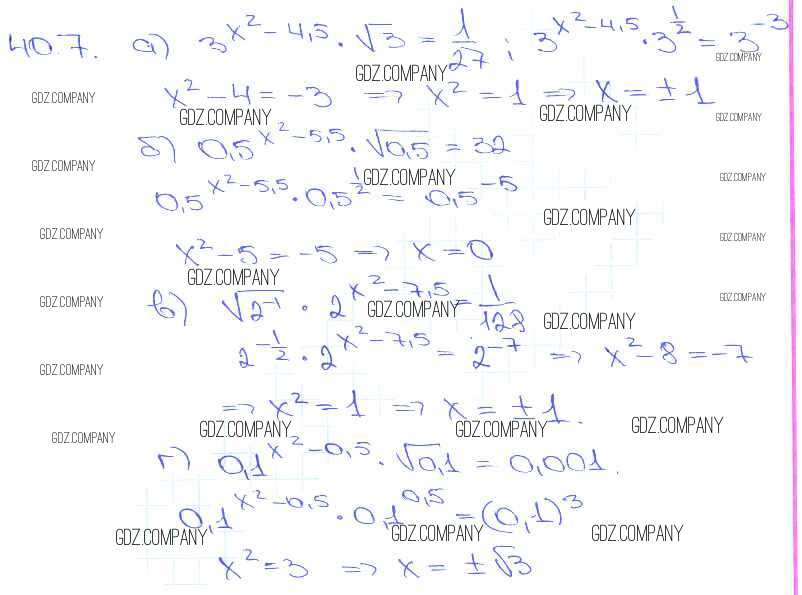 40.7. а) 3^{x²-4,5} · √3 = 1/27 ; 3^{x²-4,5} · 3^{1/2} = 3^{-3}
GDZ.COMPANY GDZ.COMPANY
x² - 4 = -3 => x² = 1 => x = ±1
GDZ.COMPANY GDZ.COMPANY GDZ.COMPANY GDZ.COMPANY
б) 0,5^{x²-5,5} · √0,5 = 32
GDZ.COMPANY GDZ.COMPANY GDZ.COMPANY
0,5^{x²-5,5} · 0,5^{1/2} = 0,5^{-5}
GDZ.COMPANY GDZ.COMPANY GDZ.COMPANY
x² - 5 = -5 => x = 0
GDZ.COMPANY
в) √2^{-1} · 2^{x²-7,5} = 1/128
GDZ.COMPANY GDZ.COMPANY GDZ.COMPANY GDZ.COMPANY
2^{-1/2} · 2^{x²-7,5} = 2^{-7} => x² - 8 = -7
GDZ.COMPANY
=> x² = 1 => x = ±1.
GDZ.COMPANY GDZ.COMPANY GDZ.COMPANY GDZ.COMPANY
г) 0,1^{x²-0,5} · √0,1 = 0,001.
0,1^{x²-0,5} · 0,1^{0,5} = (0,1)³
GDZ.COMPANY GDZ.COMPANY GDZ.COMPANY
x² = 3 => x = ±√3